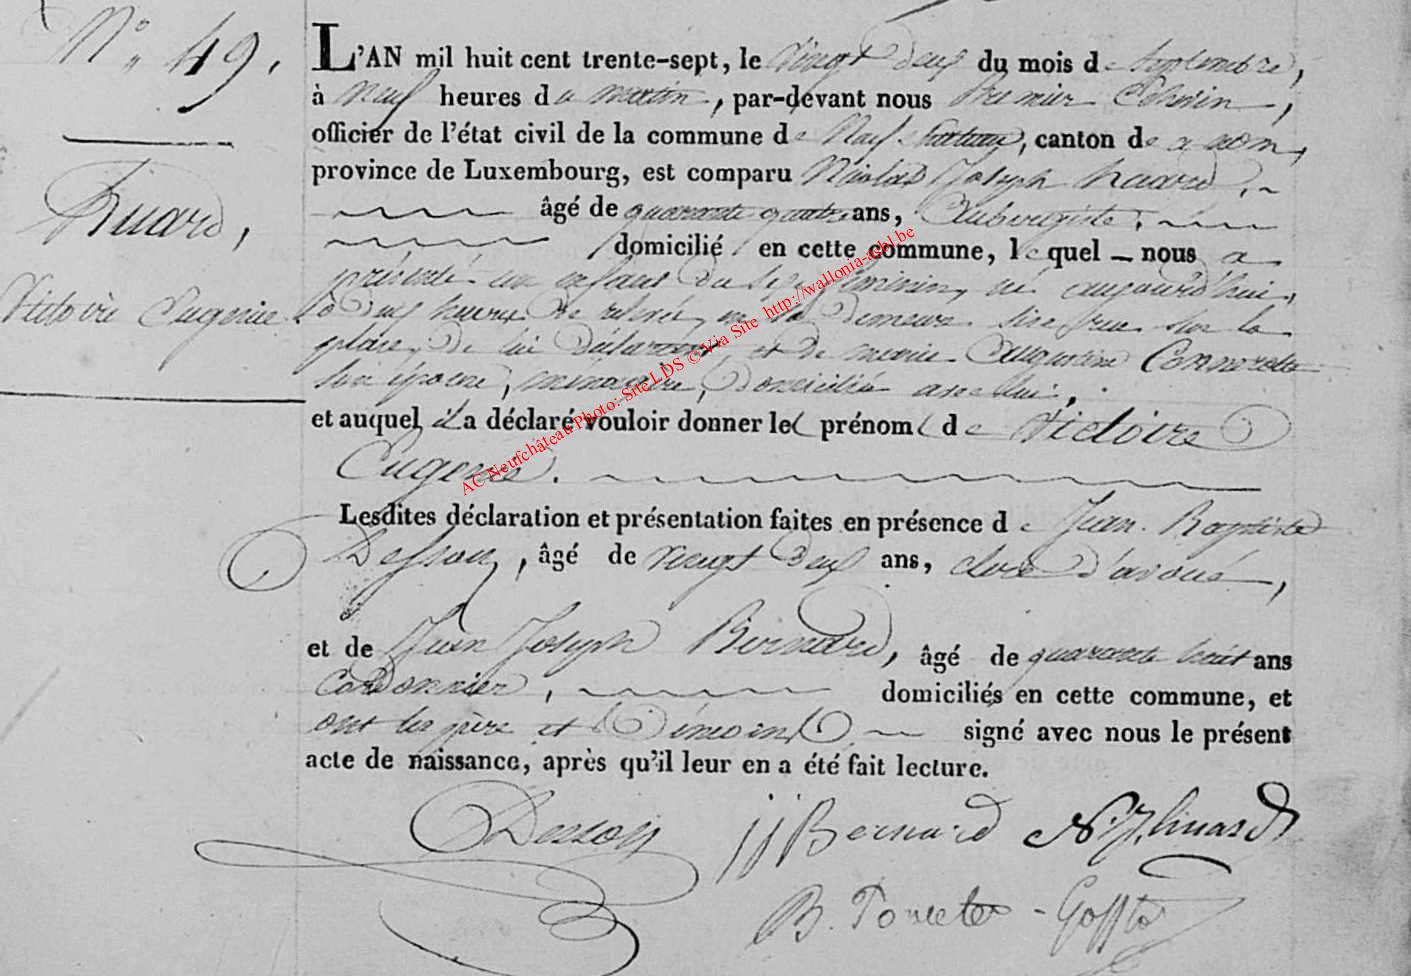 N° 49.
Huard,
Victoire Eugenie.
L'AN mil huit cent trente-sept, le Vingt deux du mois de Septembre,
à Neuf heures du matin, par-devant nous Premier Echevin,
officier de l'état civil de la commune de Neufchateau, canton de ce nom,
province de Luxembourg, est comparu Nicolas Joseph huard,
âgé de quarante quatre ans, Aubergiste,
domicilié en cette commune, lequel nous a
présenté un enfant du sexe féminin, né aujourd'hui,
à deux heures de relevée, en sa demeure sise rue sur la
place, de lui déclarant et de marie Augustine
son épouse, ménagère, domiciliée avec lui,
et auquel il a déclaré vouloir donner les prénoms de Victoire
Eugenie.
Lesdites déclaration et présentation faites en présence de Jean Baptiste
Dessoy, âgé de vingt deux ans, clerc d'avoué,
et de Jean Joseph Bernard, âgé de quarante huit ans
Cordonnier, domiciliés en cette commune, et
ont les père et témoins signé avec nous le présent
acte de naissance, après qu'il leur en a été fait lecture.
Dessoy JJ Bernard N. J. huard
B.
AC Neufchâteau Photo: Site LDS © Via Site http://wallonia-asbl.be